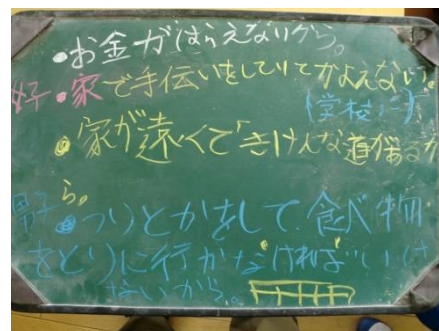 ・お金がはらえないから。
女子・家で手伝いをしていてかよえない。
(学校に)
・家が遠くて、きけんな道通るか
ら。
男子・つりとかをして食べ物
をとりに行かなければいけ
ないから。